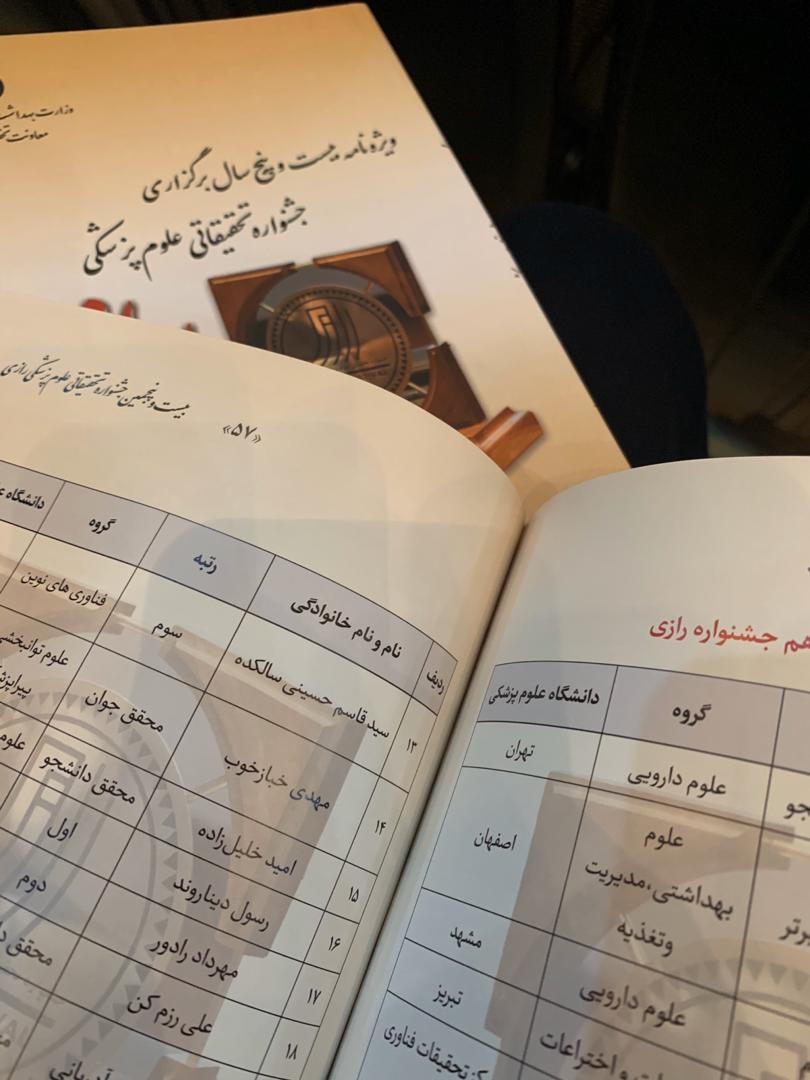 وزارت بهداشت
معاونت
ویژه‌نامه بیست و پنج سال برگزاری
جشنواره تحقیقاتی علوم پزشکی
بیست و پنجمین جشنواره تحقیقاتی علوم پزشکی رازی
«۵۷»
ردیف نام و نام خانوادگی رتبه گروه دانشگاه
۱۳ سید قاسم حسینی سالکده سوم فناوری های نوین
۱۴ مهدی خبازخوب محقق جوان علوم توانبخشی
۱۵ امید خلیل‌زاده محقق دانشجو علوم
۱۶ رسول دیناروند اول
۱۷ مهرداد رادور دوم
۱۸ علی رزم کن محقق
جشنواره رازی
گروه دانشگاه علوم پزشکی
علوم دارویی تهران
علوم
بهداشتی،مدیریت اصفهان
وتغذیه
علوم دارویی مشهد
و اختراعات تبریز
تحقیقات فناوری